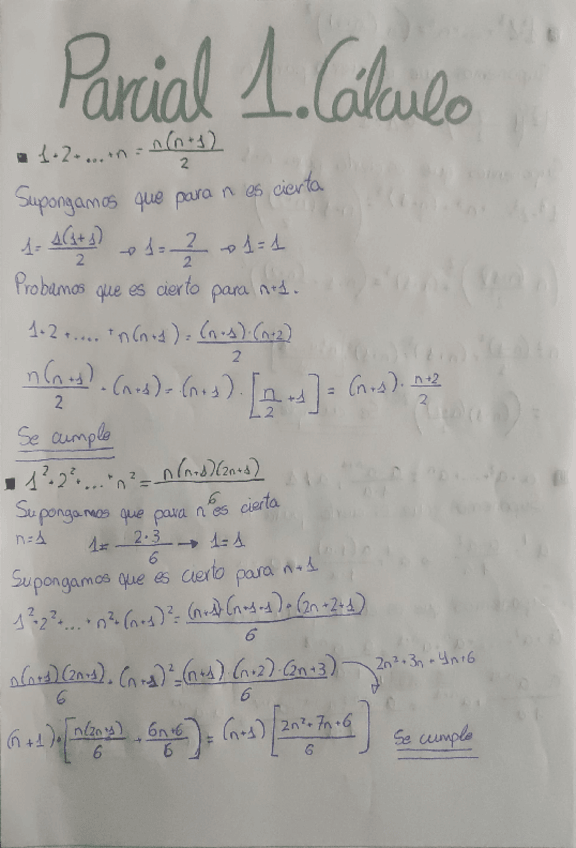 Parcial 1. Cálculo
1+2+...+n = n(n+1)/2
Supongamos que para n es cierta
1 = 1(1+1)/2 → 1 = 2/2 → 1 = 1
Probamos que es cierto para n+1.
1+2+....+n(n+1) = (n+1)·(n+2)/2
n(n+1)/2 + (n+1) = (n+1)·[n/2 + 1] = (n+1)·n+2/2
Se cumple
1²+2²+...+n² = n(n+1)(2n+1)/6
Supongamos que para n es cierta
n=1 1 = 2·3/6 → 1 = 1
Supongamos que es cierto para n+1
1²+2²+...+n²+(n+1)² = (n+1)·(n+1+1)·(2n+2+1)/6
n(n+1)(2n+1)/6 + (n+1)² = (n+1)·(n+2)·(2n+3)/6 → 2n²+3n+4n+6
(n+1)·[n(2n+1)/6 + 6n+6/6] = (n+1)[2n²+7n+6/6] Se cumple